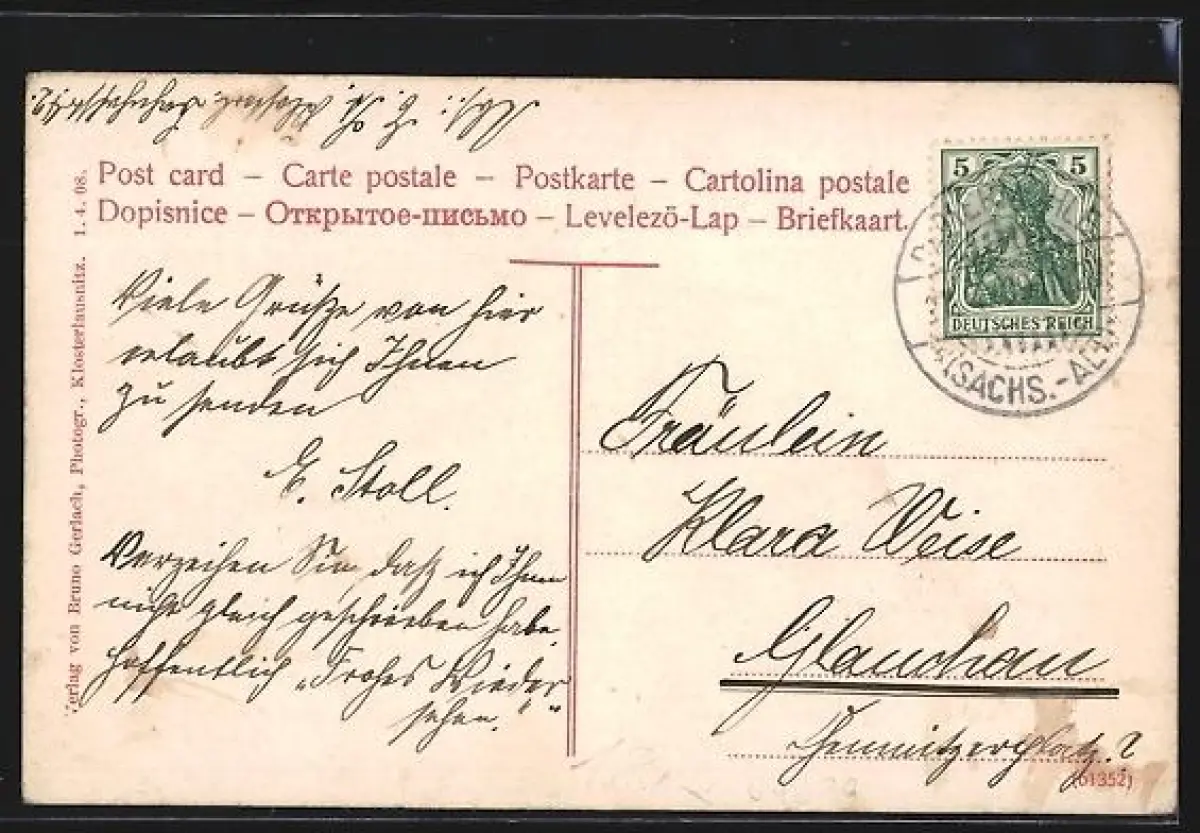 Post card – Carte postale – Postkarte – Cartolina postale
Dopisnice – Открытое-письмо – Levelezö-Lap – Briefkaart.
Verlag von Bruno Gerlach, Photogr., Klosterlausnitz. 1. 4. 08.
5 5
DEUTSCHES REICH
(SACHS.-ALT
Viele Grüße von hier
erlaubt sich Ihnen
zu senden
E. Stoll.
Verzeihen Sie, daß ich Ihnen
nicht gleich geschrieben habe.
Hoffentlich „Frohes Wieder
sehen."
Fräulein
Klara Weise
Glauchau
Chemnitzerplatz.?
(61352)